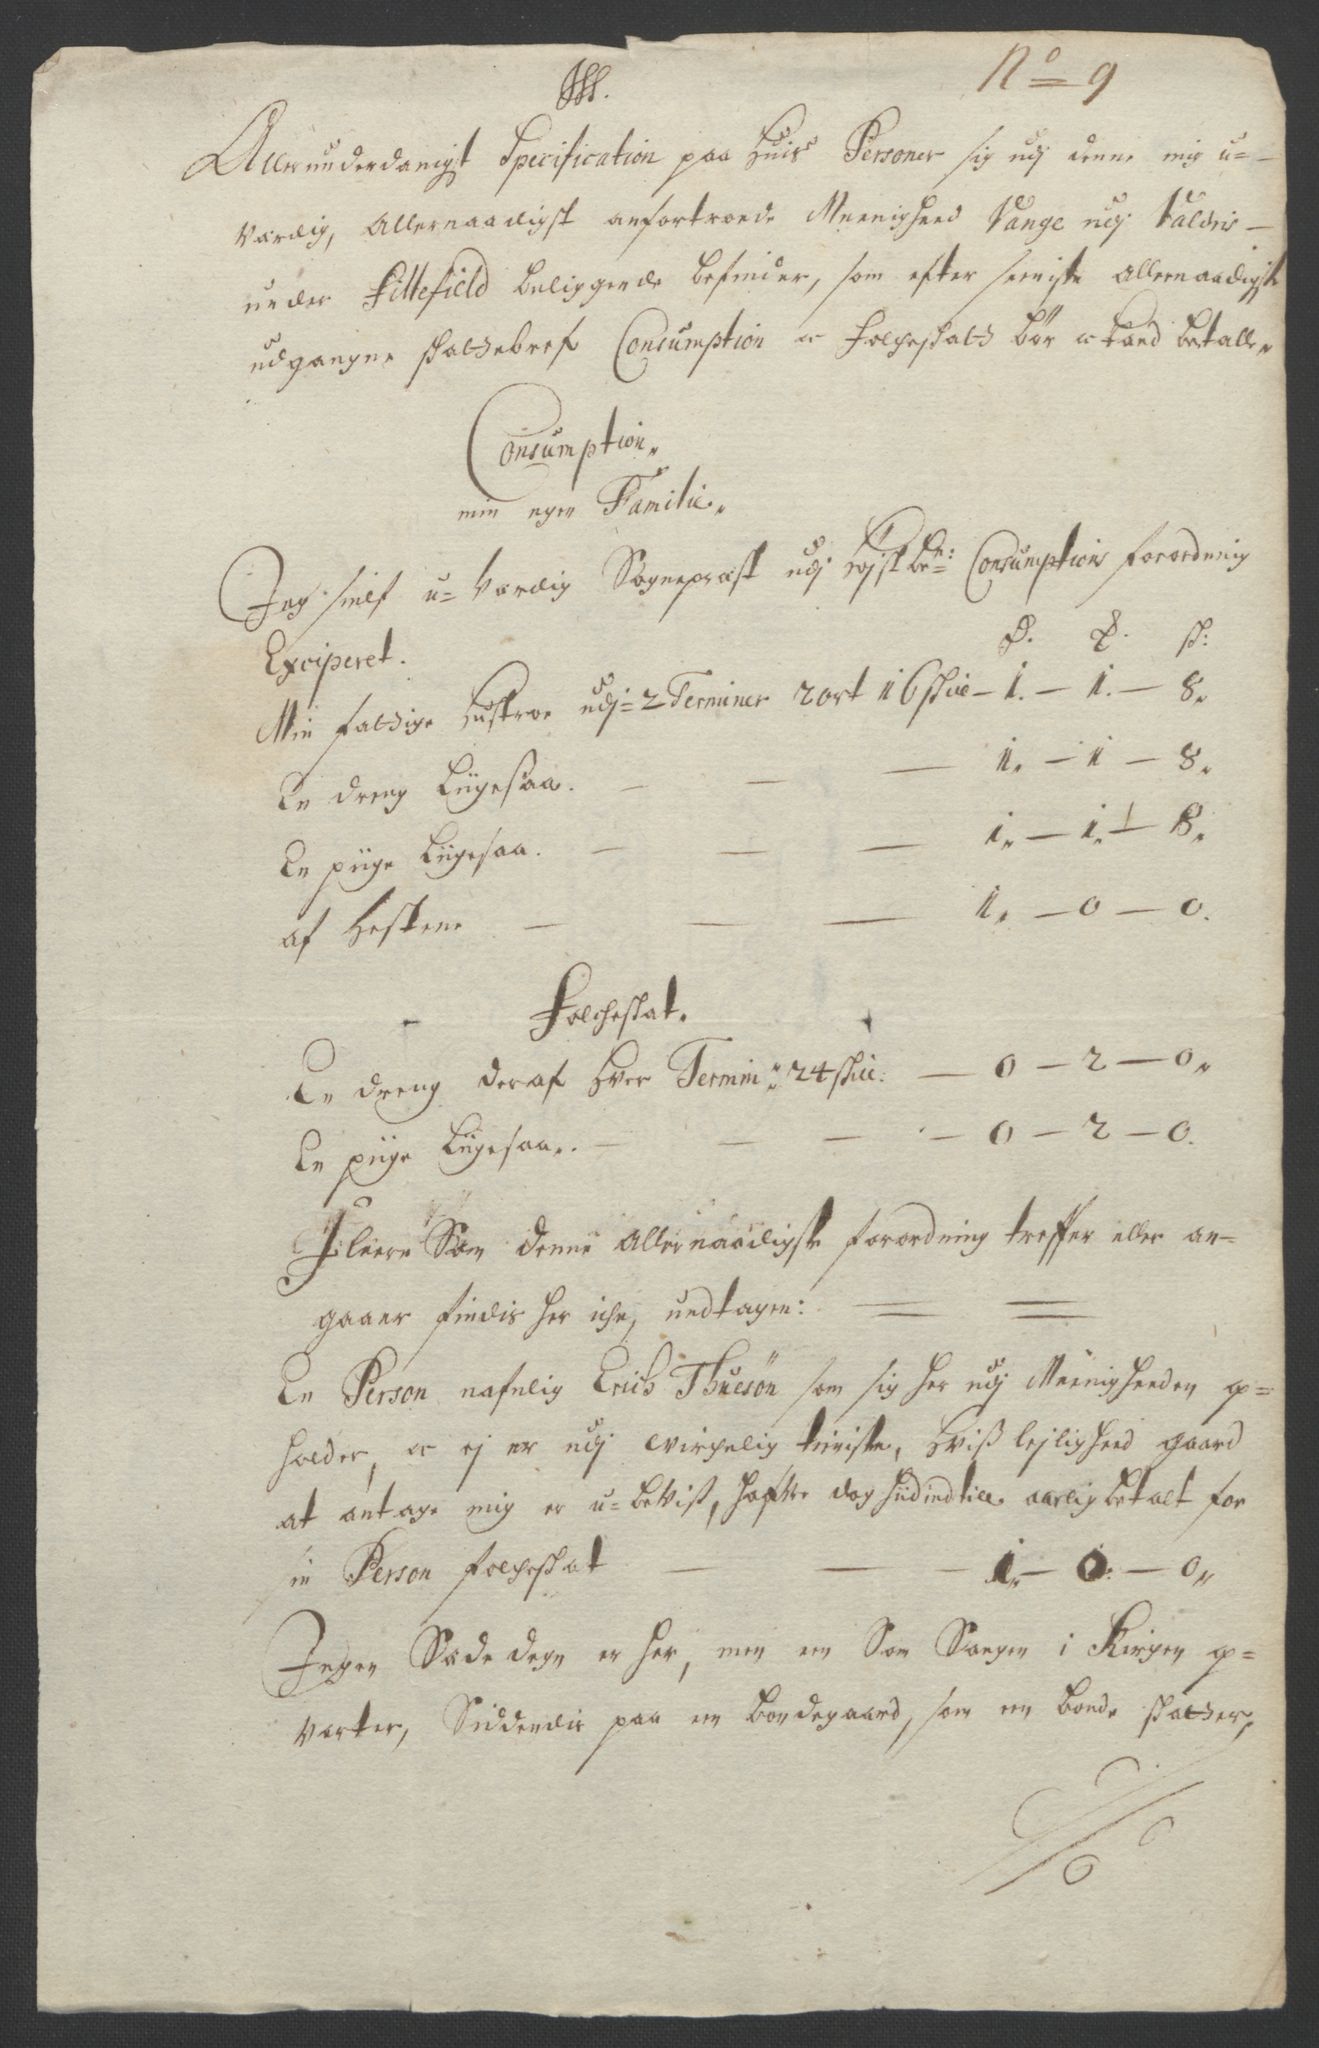 No 9
Allerunderdanigst Specification paa Huis Personer sig udj denne mig u=
værdig, Allernaadigst anfortroede Meenighed Vange udj Valdris
under Fillefield beliggende befinder, som efter seeniste allernaadigste
udgangne skattebref Consumption oc Folcheskatt bør oc kand betalle
Consumption
min egen Familie
Jeg sielf u=værdig Sognepræst udj højstbem: Consumptions forordning
Exciperet.
D. sk:
Min fattige Hustroe udj 2 Terminer 2 ort 16 skil – 1. – 1. – 8.
En dreng Ligesaa. – – – 1. – 1 – 8.
En piige Ligesaa. – – – 1. – 1. – 8.
af Hestene – – – 1. – 0 – 0.
Folcheskat.
En dreng deraf hver Termin 24 skil: – 0 – 2 – 0.
En piige Ligesaa. – – – – 0 – 2 – 0.
Fleere Som denne Allernaadigste forordning treffer eller an=
gaaer findis her iche, undtagen:
En Person nafnlig Erich Thuesøn som sig her udj Meenigheeden op=
holder, oc ej er udj virchelig tieniste, hviss lejlighed gaard
at antage mig er u=bevist, hafver dog hiidindtill aarlig betalt for
sin Person folcheskat – – – 1. – 0. – 0.
Ingen Sæde degn er her, men een Som Sangen i Kirchen op=
varter, Siddendis paa een bondegaard, som een bonde skatter,